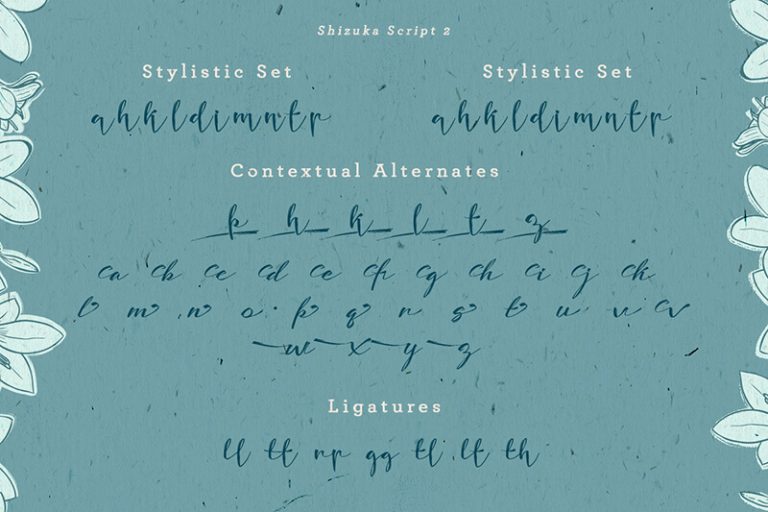 Shizuka Script 2
Stylistic Set Stylistic Set
ahkldimntr ahkldimntr
Contextual Alternates
p h k l t z
ca cb cc cd ce cf cg ch ci cj ck
l m n o p q r s t u v cv
w x y z
Ligatures
ll tt rr gg tl lt th